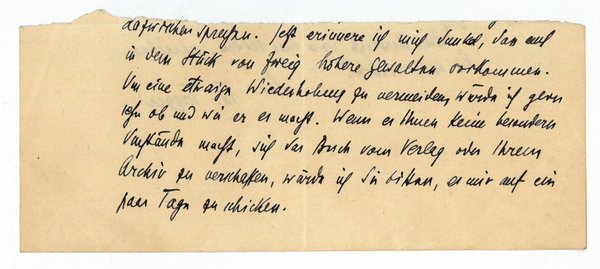 dazwischen sprechen. Jetzt erinnere ich mich dunkel, dass auch
in dem Stück von Zweig höhere Gewalten vorkommen.
Um eine etwaige Wiederholung zu vermeiden, würde ich gern
sehn ob und wie er es macht. Wenn es Ihnen keine besondern
Umstände macht, sich das Buch vom Verlag oder Ihrem
Archiv zu verschaffen, würde ich Sie bitten, es mir auf ein
paar Tage zu schicken.